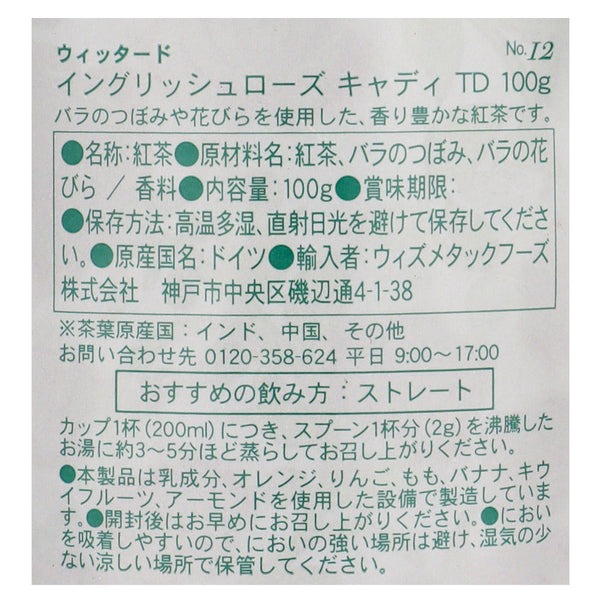 ウィッタード
No.12
イングリッシュローズ キャディ TD 100g
バラのつぼみや花びらを使用した、香り豊かな紅茶です。
●名称:紅茶●原材料名:紅茶、バラのつぼみ、バラの花
びら / 香料●内容量:100g●賞味期限:
●保存方法:高温多湿、直射日光を避けて保存してくださ
い。●原産国名:ドイツ●輸入者:ウィズメタックフーズ
株式会社 神戸市中央区磯辺通4-1-38
※茶葉原産国：インド、中国、その他
お問い合わせ先 0120-358-624 平日 9:00～17:00
おすすめの飲み方：ストレート
カップ1杯(200ml)につき、スプーン1杯分(2g)を沸騰した
お湯に約3～5分ほど蒸らしてお召し上がりください。
●本製品は乳成分、オレンジ、りんご、もも、バナナ、キウ
イフルーツ、アーモンドを使用した設備で製造していま
す。●開封後はお早めにお召し上がりください。●におい
を吸着しやすいので、においの強い場所は避け、湿気の少
ない涼しい場所で保管してください。